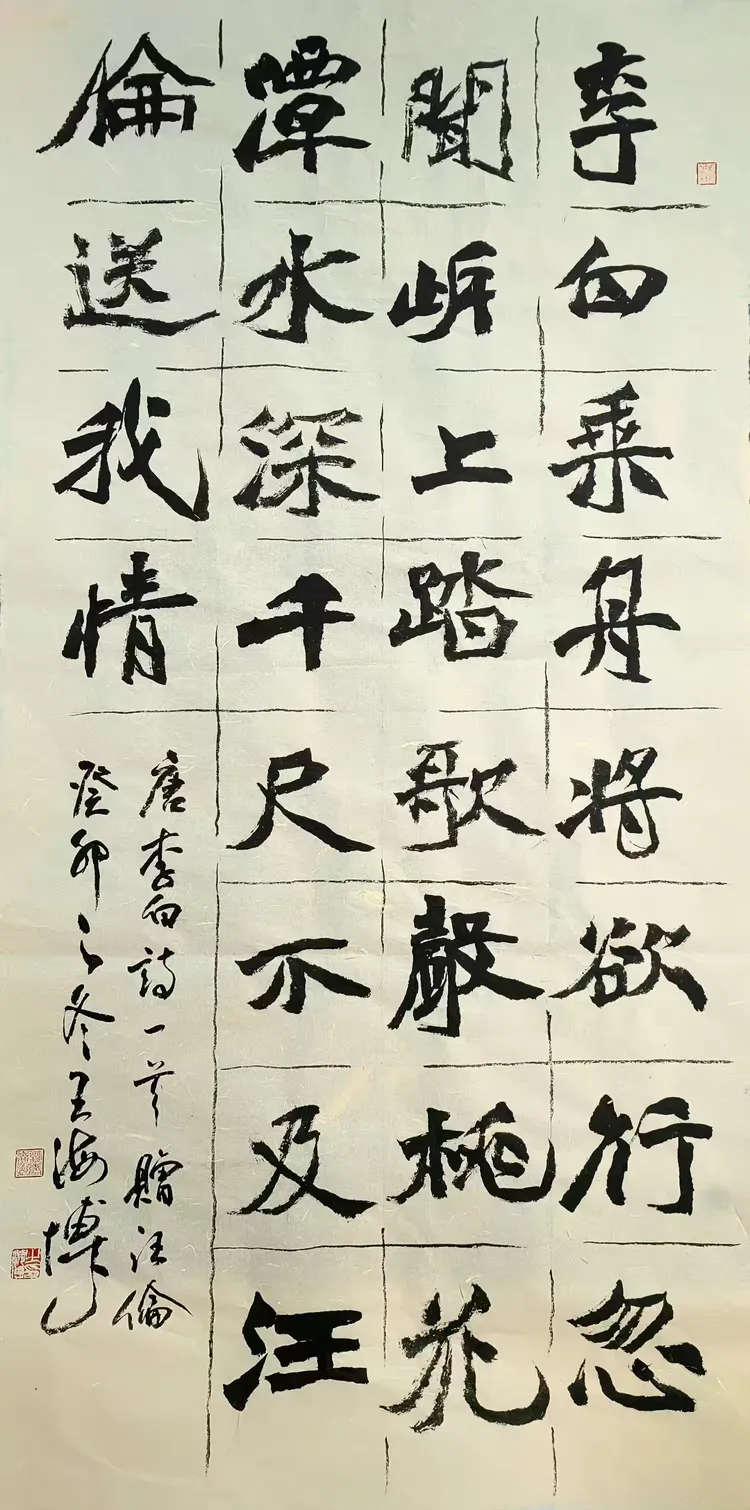 李白乘舟將欲行忽
聞岸上踏歌聲桃花
潭水深千尺不及汪
倫送我情
唐李白詩一首贈汪倫
癸卯之冬王海博